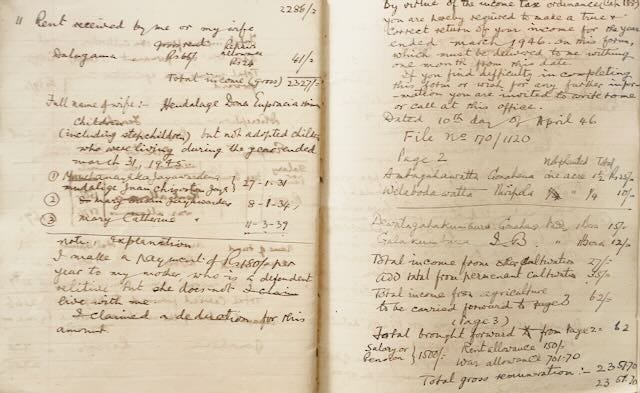 2286/2
11 Rent received by me or my wife
gross rent Repairs
allowance
Dalugama Rs 66 Rs 24 41/2
Total income (gross) 2327/2
Full name of wife :- Hendalage Dona Euphracia
Children
(including stepchildren) but not adopted children
who were living during the year ended
march 31, 1945
①
27-1-31
② mary 8-1-34
③ mary Catherine " 11-3-39
note. Explanation
I make a payment of Rs 180/- per
year to my mother who is a dependent
relative but she does not
live with me
I claimed a deduction for this
amount
By virtue of the income tax ordinance
you are hereby required to make a true &
correct return of your income for the year
ended march 1946. on this form
which must be delivered to me within
one month from this date.
If you find difficulty in completing
this form or wish for any further infor-
mation you are invited to write to me
or call at this office.
Dated 10th day of April 46
File No 170/1120
Page 2
Total
Ambagahawatta Gonahena one acre 25/-
Welabodawatta 1/4 10/-
15/-
Galakumbura 12/-
Total income from cultivation 27/-
add total from permanent cultivation 35/-
Total income from agriculture
to be carried forward to page 3 62/-
(Page 3)
Total brought forward from page 2 = 62
Salary or Pension } 1500/- Rent allowance 150/-
War allowance 701.70
Total gross remuneration :- 2351.70